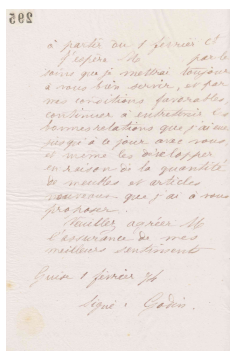 295
à partir du 1 février et
J'espère M par le
soins que je mettrai toujours
à vous bien servir, et par
mes conditions favorables,
continuer à entretenir les
bonnes relations que j'ai eues
jusqu'à ce jour avec vous,
et même les développer
en raison de la quantité
de meubles et articles
nouveaux que j'ai à vous
proposer.
Veuillez agréer M
l'assurance de mes
meilleurs sentiments
Guise 1 février 76
Signé : Godin.